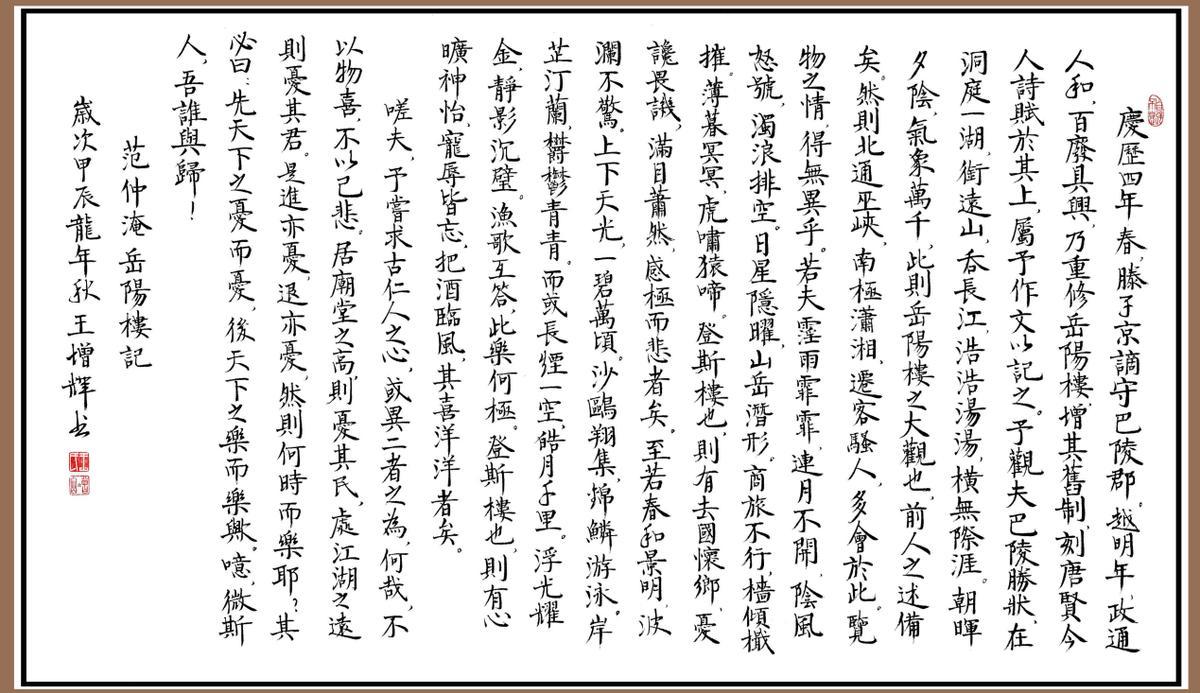 慶歷四年春，滕子京謫守巴陵郡。越明年，政通
人和，百廢具興，乃重修岳陽樓，增其舊制，刻唐賢今
人詩賦於其上，屬予作文以記之。予觀夫巴陵勝狀，在
洞庭一湖，銜遠山，吞長江，浩浩湯湯，橫無際涯。朝暉
夕陰，氣象萬千，此則岳陽樓之大觀也，前人之述備
矣。然則北通巫峽，南極瀟湘，遷客騷人，多會於此，覽
物之情，得無異乎。若夫霪雨霏霏，連月不開，陰風
怒號，濁浪排空。日星隱曜，山岳潛形。商旅不行，檣傾檝
摧。薄暮冥冥，虎嘯猿啼。登斯樓也，則有去國懷鄉，憂
讒畏譏，滿目蕭然，感極而悲者矣。至若春和景明，波
瀾不驚。上下天光，一碧萬頃。沙鷗翔集，錦鱗游泳。岸
芷汀蘭，鬱鬱青青。而或長煙一空，皓月千里。浮光耀
金，靜影沉璧。漁歌互答，此樂何極。登斯樓也，則有心
曠神怡，寵辱皆忘，把酒臨風，其喜洋洋者矣。
嗟夫，予嘗求古仁人之心，或異二者之為，何哉，不
以物喜，不以己悲。居廟堂之高，則憂其民，處江湖之遠
則憂其君。是進亦憂，退亦憂，然則何時而樂耶？其
必曰：先天下之憂而憂，後天下之樂而樂歟。噫，微斯
人，吾誰與歸！
范仲淹岳陽樓記
歲次甲辰龍年秋王增輝书